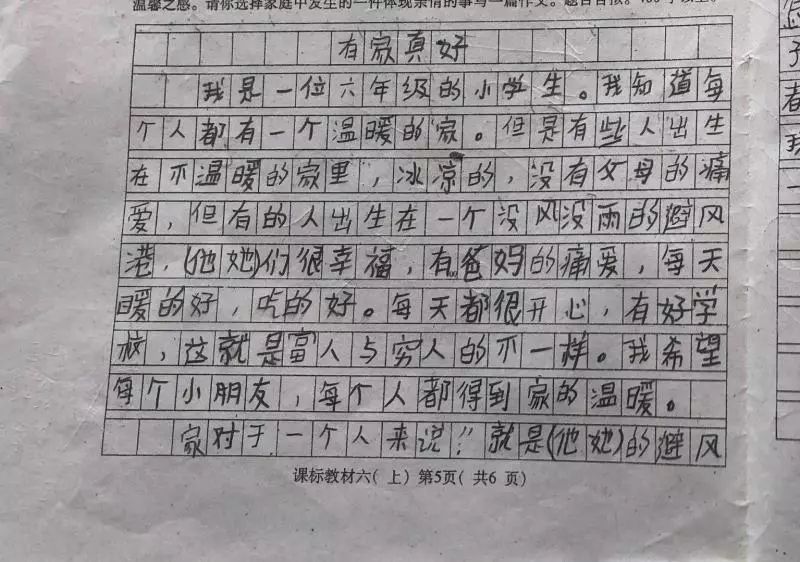 温馨之感。请你选择家庭中发生的一件体现亲情的事写一篇作文。题目自拟。
有家真好
我是一位六年级的小学生。我知道每
个人都有一个温暖的家。但是有些人出生
在不温暖的家里,冰凉的,没有父母的痛
爱,但有的人出生在一个没风没雨的避风
港,(他她)们很幸福,有爸妈的痛爱,每天
暖的好,吃的好。每天都很开心,有好学
校,这就是富人与穷人的不一样。我希望
每个小朋友,每个人都得到家的温暖。
家对于一个人来说!就是(他她)的避风
课标教材六(上)第5页(共6页)